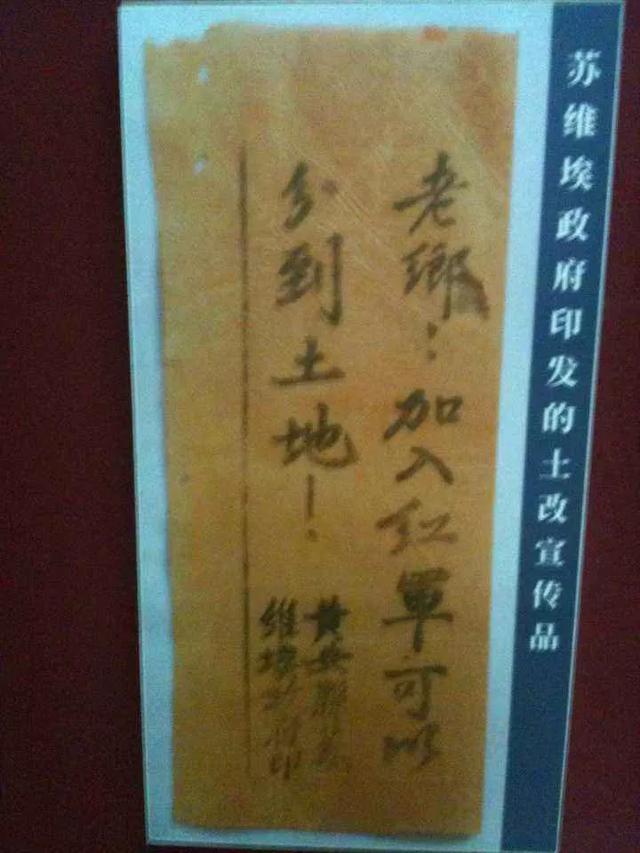 苏维埃政府印发的土改宣传品
老鄉：加入红軍可以
分到土地！
黄安縣苏
維埃政府印